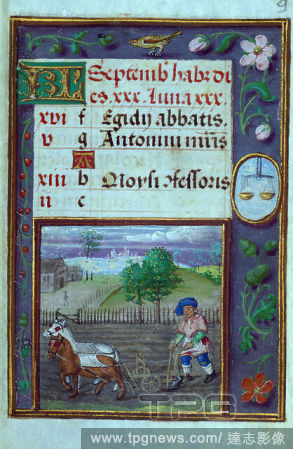 9
KL Septemb habz di
es.xxx. Luna xxx.
xvi f Egidij abbatis.
v g Antonini mris
A
xiii b Moysi ꝯfessoris
ii c
TPG
www.tpgnews.com / 達志影像